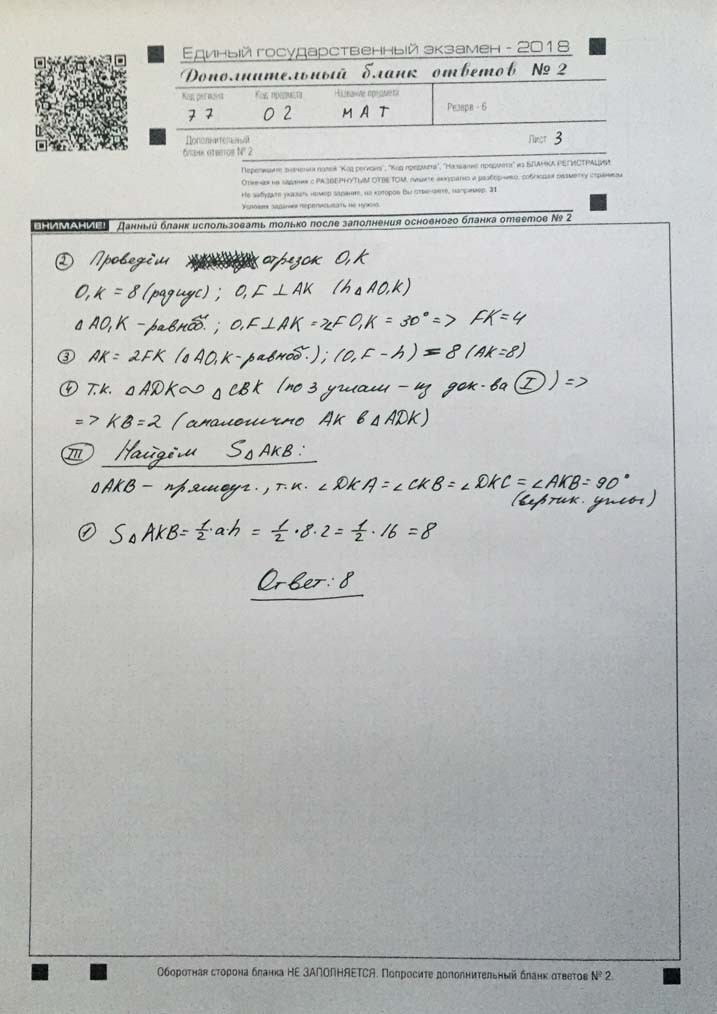 Единый государственный экзамен - 2018
Дополнительный бланк ответов № 2
Код региона Код предмета Название предмета
77 02 МАТ
Резерв - 6
Дополнительный
бланк ответов № 2
Лист 3
Перепишите значения полей "Код региона", "Код предмета", "Название предмета" из БЛАНКА РЕГИСТРАЦИИ.
Отвечая на задания с РАЗВЕРНУТЫМ ОТВЕТОМ, пишите аккуратно и разборчиво, соблюдая разметку страницы.
Не забудьте указать номер задания, на которое Вы отвечаете, например, 31.
Условия задания переписывать не нужно.
ВНИМАНИЕ! Данный бланк использовать только после заполнения основного бланка ответов № 2
② Проведём отрезок O₁K
O₁K = 8 (радиус); O₁F ⊥ AK (h △ AO₁K)
△ AO₁K - равноб.; O₁F ⊥ AK => ∠FO₁K = 30° => FK = 4
③ AK = 2FK (△ AO₁K - равноб.); (O₁F - h) = 8 (AK=8)
④ т.к. △ ADK ∾ △ CBK (по 3 углам - из док-ва Ⅰ) =>
=> KB = 2 (аналогично AK в △ ADK)
Ⅲ Найдём S△AKB:
△AKB - прямоуг., т.к. ∠DKA = ∠CKB = ∠DKC = ∠AKB = 90°
(вертик. углы)
① S△AKB = 1/2 · a · h = 1/2 · 8 · 2 = 1/2 · 16 = 8
Ответ: 8
Оборотная сторона бланка НЕ ЗАПОЛНЯЕТСЯ. Попросите дополнительный бланк ответов № 2.